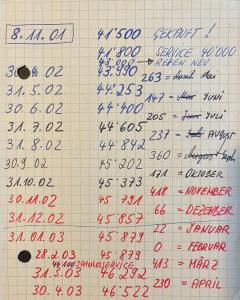 8.11.01 41'500 GEKAUFT!
41'800 SERVICE 40'000
43'000 REFEN NEU
30.4.02 43'990
263 = Mai
31.5.02 44'253
147 = JUNI
30.6.02 44'400
205 = JUNI
31.7.02 44'605
237 = AUGUST
31.8.02 44'842
360 = Sept.
30.9.02 45'202
171 OKTOBER
31.10.02 45'373
418 = NOVEMBER
30.11.02 45'791
66 = DEZEMBER
31.12.02 45'857
22 = JANUAR
31.01.03 45'879
0 = FEBRUAR
28.2.03 45'879
46'100 JAHRESSERVICE
413 = MÄRZ
31.3.03 46'292
230 = APRIL
30.4.03 46'522